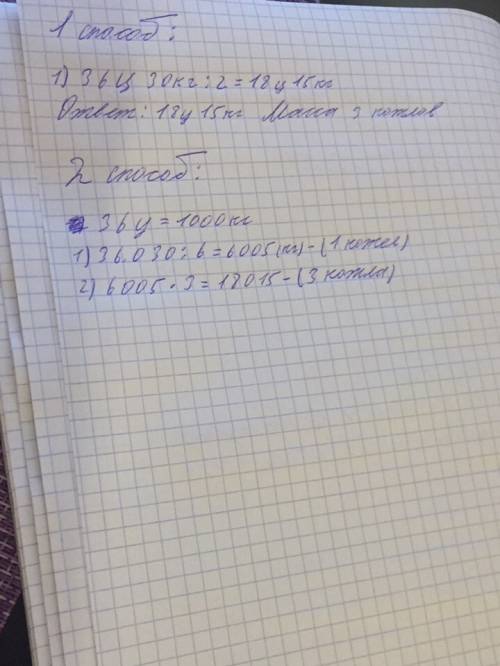 1 способ:
1) 36ц 30кг : 2 = 18ц 15кг
Ответ: 18ц 15кг Масса 3 котлов
2 способ:
36ц = 1000кг
1) 36.030 : 6 = 6005 (кг) - (1 котел)
2) 6005 · 3 = 18015 - (3 котлы)